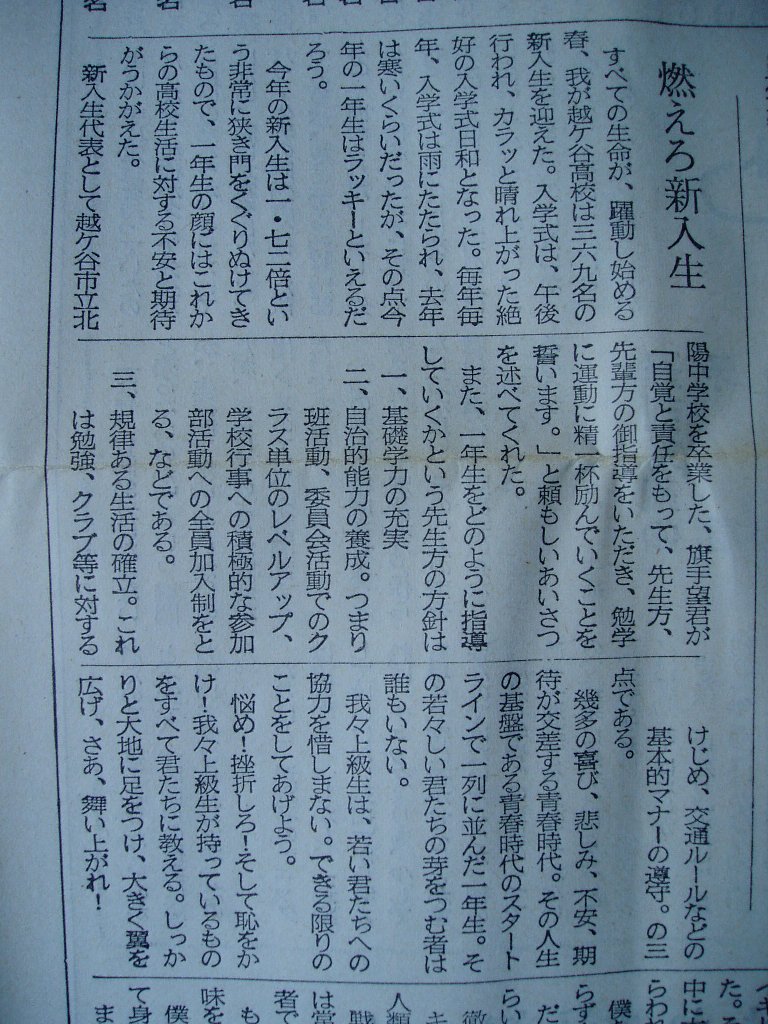 燃えろ新入生
すべての生命が、躍動し始める
春、我が越ケ谷高校は三六九名の
新入生を迎えた。入学式は、午後
行われ、カラッと晴れ上がった絶
好の入学式日和となった。毎年毎
年、入学式は雨にたたられ、去年
は寒いくらいだったが、その点今
年の一年生はラッキーといえるだ
ろう。
今年の新入生は一・七二倍とい
う非常に狭き門をくぐりぬけてき
たもので、一年生の顔にはこれか
らの高校生活に対する不安と期待
がうかがえた。
新入生代表として越ケ谷市立北
陽中学校を卒業した、旗手望君が
「自覚と責任をもって、先生方、
先輩方の御指導をいただき、勉学
に運動に精一杯励んでいくことを
誓います。」と頼もしいあいさつ
を述べてくれた。
また、一年生をどのように指導
していくかという先生方の方針は
一、基礎学力の充実
二、自治的能力の養成。つまり
班活動、委員会活動でのク
ラス単位のレベルアップ、
学校行事への積極的な参加
部活動への全員加入制をと
る、などである。
三、規律ある生活の確立。これ
は勉強、クラブ等に対する
けじめ、交通ルールなどの
基本的マナーの遵守。の三
点である。
幾多の喜び、悲しみ、不安、期
待が交差する青春時代。その人生
の基盤である青春時代のスタート
ラインで一列に並んだ一年生。そ
の若々しい君たちの芽をつむ者は
誰もいない。
我々上級生は、若い君たちへの
協力を惜しまない。できる限りの
ことをしてあげよう。
悩め!挫折しろ!そして恥をか
け!我々上級生が持っているもの
をすべて君たちに教える。しっか
りと大地に足をつけ、大きく翼を
広げ、さあ、舞い上がれ!